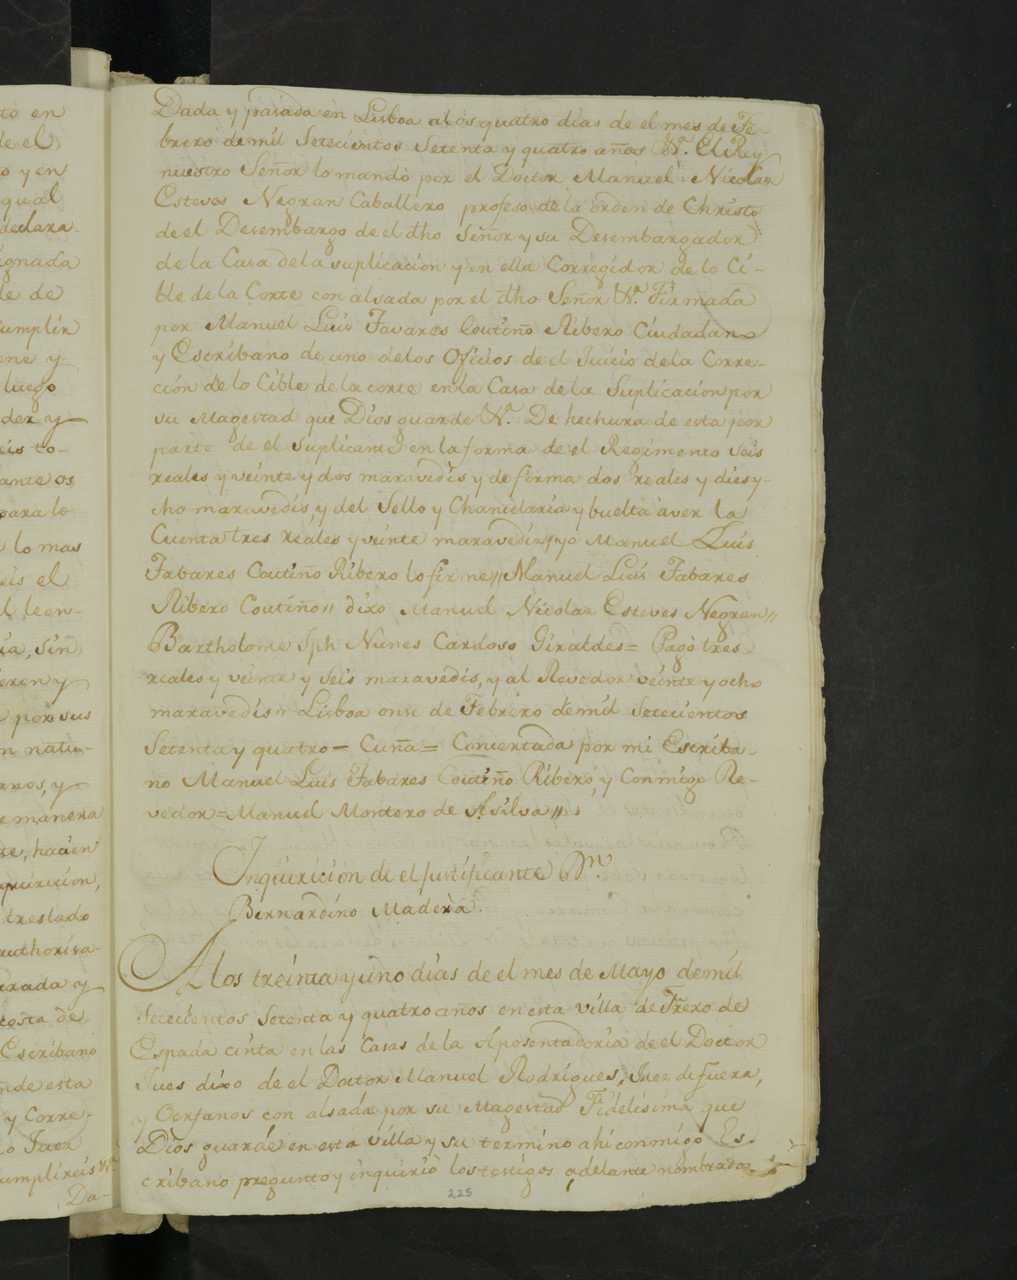 to en
de el
o y en
qual
declara
ignada
le de
umplir
ene y
luego
der y
eis to-
ante os
para lo
lo mas
eis el
l, leen-
ia, sin
eren y
por sus
n natu-
arros, y
e manera
te, hacien
quiricion,
treslado
authoriza-
arada y
costa de
Escribano
de esta
y Corre-
o Juez
umplireis
Da-
Dada y pasada en Lisboa alos quatro dias de el mes de Fe-
brero de mil Setecientos Setenta y quatro años El Rey
nuestro Señor lo mandò por el Doctor Manuel Nicolas
Esteves Negran Caballero profeso de la orden de Christo
de el Desembargo de el dho Señor y su Desembargador
de la Casa dela suplicacion y en ella Corregidor de lo Ci-
ble de la Corte con alsada por el dho Señor Firmada
por Manuel Luis Tavares Coutiño Ribero Ciudadano
y Escribano de uno delos Oficios de el Juicio dela Corre-
ción de lo Cible de la corte en la Casa de la Suplicacion por
su Magestad que Dios guarde De hechura de esta por
parte de el Suplicante en la forma de el Regimento Seis
reales y veinte y dos maravedis y de firma dos reales y diesy-
cho maravedis y del Sello y Chancelaria y buelta aver la
Cuenta tres reales y veinte maravedis yo Manuel Luis
Tabares Coutiño Ribero lo firme // Manuel Luis Tabares
Ribero Coutiño // dixo Manuel Nicolas Esteves Negran //
Bartholome Jph Nunes Cardoso Giraldes = Pagò tres
reales y veinte y seis maravedis, y al Revedor veinte y ocho
maravedis Lisboa onse de Febrero de mil Setecientos
Setenta y quatro = Cuña = Concertada por mi Escriba-
no Manuel Luis Tabares Coutiño Ribero, y Conmigo Re-
vedor = Manuel Montero de Silva //
Inquiricion de el justificante Dn
Bernardino Madera.
A los treinta y uno dias de el mes de Mayo de mil
Setecientos Setenta y quatro años en esta villa de Frexo de
Espada cinta en las Casas de la Aposentadoria de el Doctor
Jues dixo de el Doctor Manuel Rodrigues, Juez de fuera,
y Orfanos con alsada por su Magestad Fidelisima que
Dios guarde en esta villa y su termino ahi conmigo Es-
cribano pregunto y inquiriò los testigos adelante nombrados
225